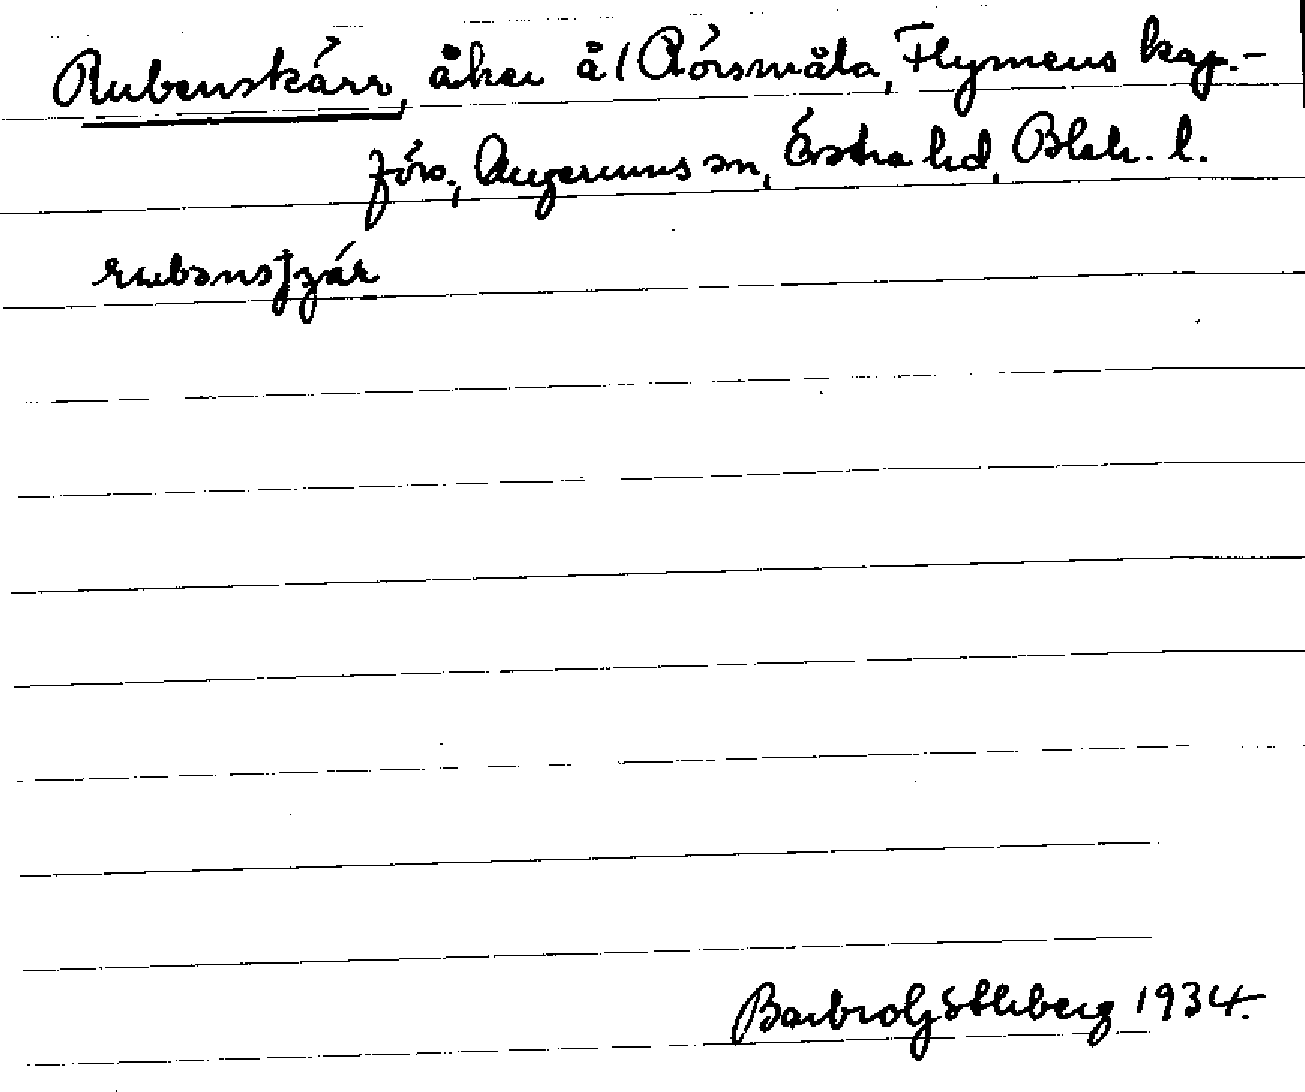 Rubenskärr, åker å/ Rörsmåla, Flymens kap.-
förs., Augerums sn, Östra hd, Blek. l.
rubənsʃʒär
Barbro Göthberg 1934.